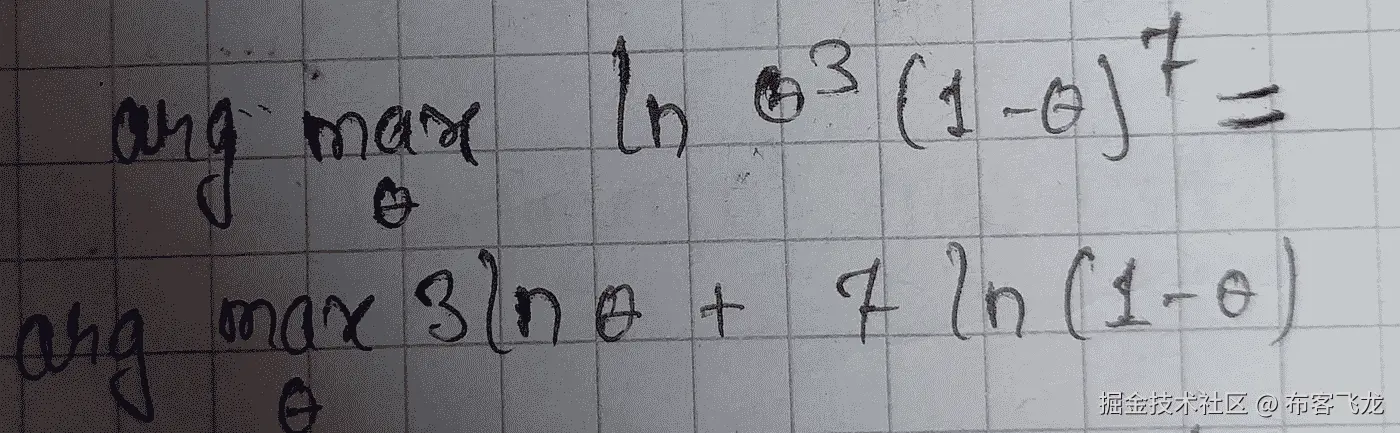 arg max ln θ³ (1-θ)⁷ =
θ
arg max 3 ln θ + 7 ln (1-θ)
θ
掘金技术社区 @ 布客飞龙